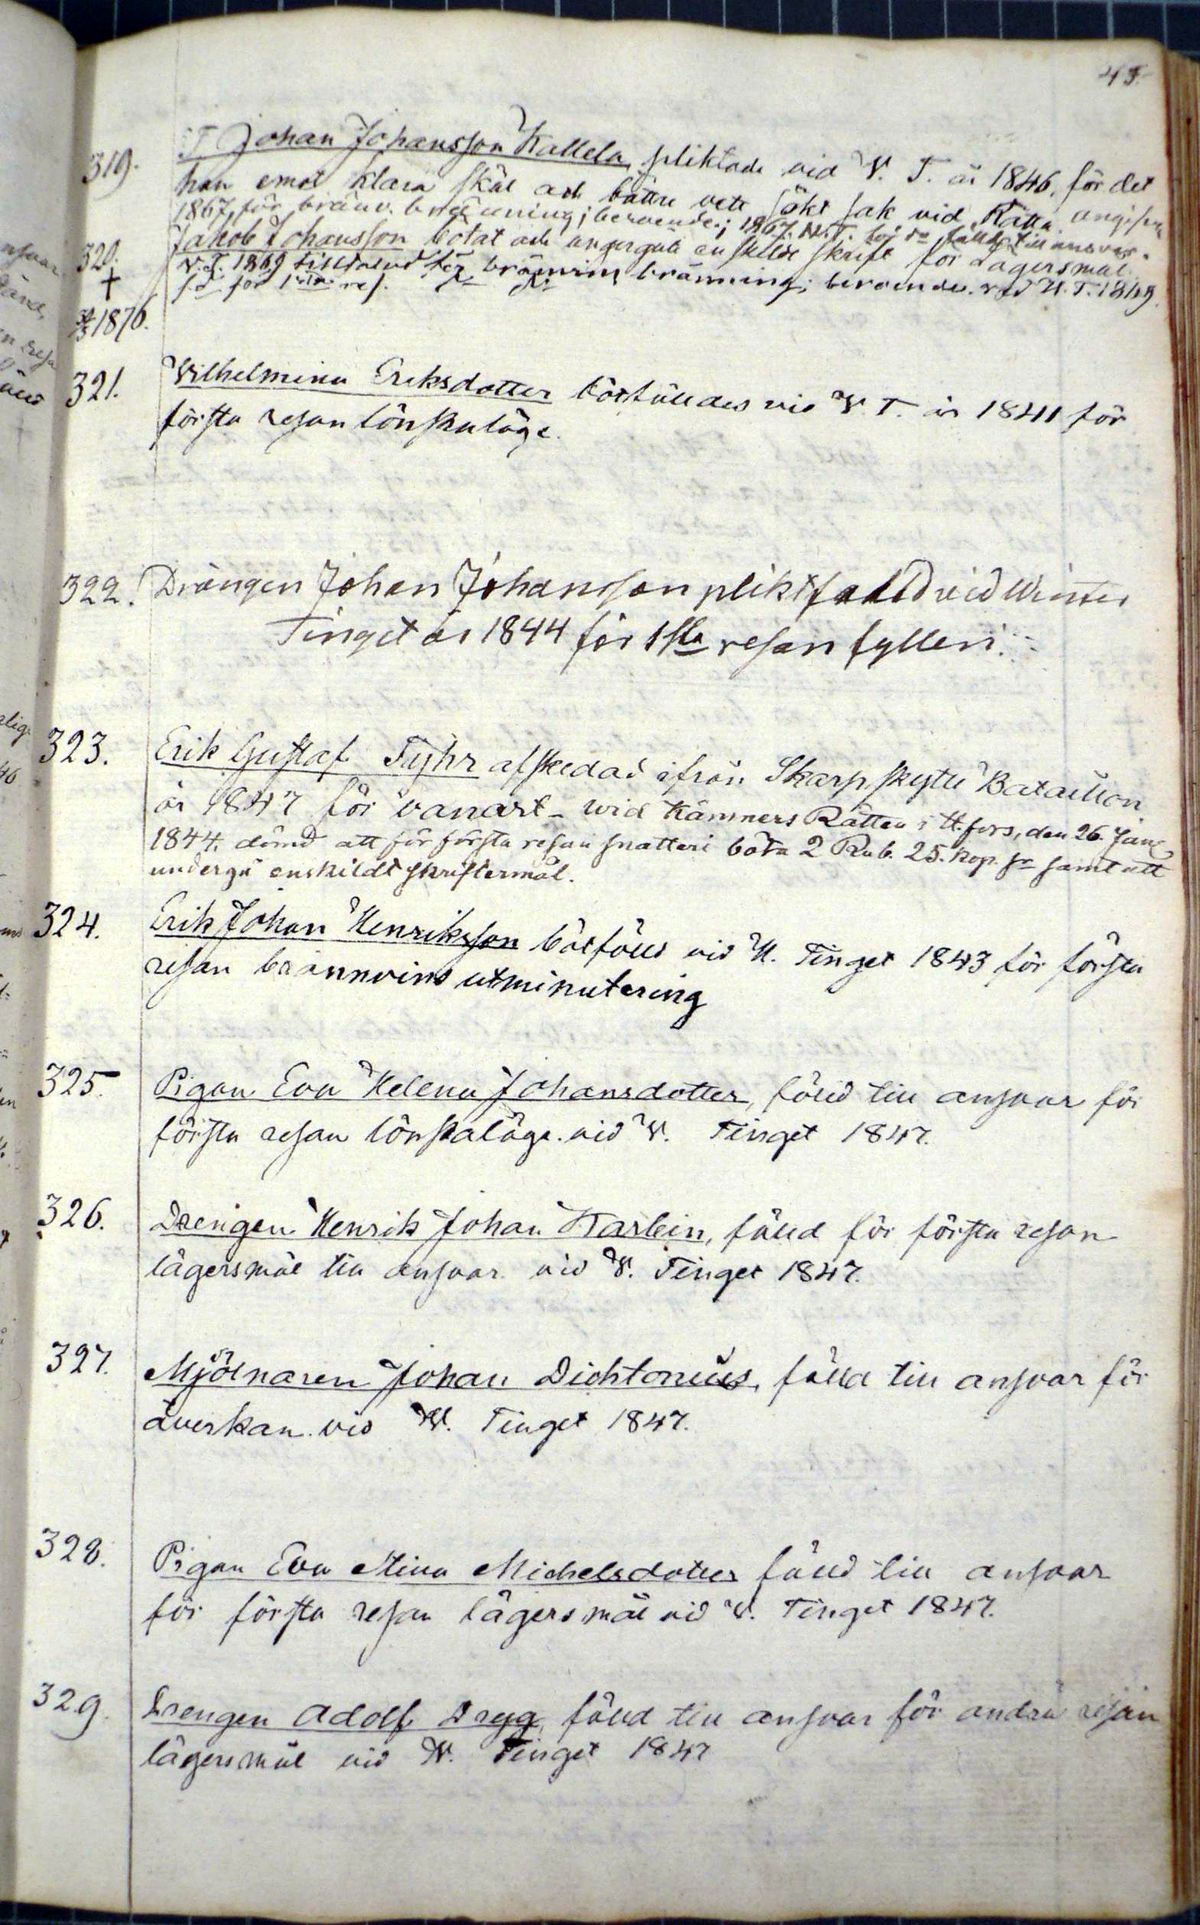 45.
319. T. Johan Johansson Kallela, pliktade vid V. T. år 1846, för det
han emot klara skäl och bättre vett sökt sak vid Rätta
1867 för bränv. bränning; beroende; 1867 H.T. för do fälld till ansvar.
320. Jakob Johansson botat och undergått enskildt skrift för Lägersmål.
† V. T. 1869 tilltalad för bränvins bränning; beroende. vid H. T. 1869
1876.
321. Wilhelmina Eriksdotter botfälldes vid V. T. år 1841 för
första resan lönskaläge.
322. Drängen Johan Johansson pliktfälld vid Winter
Tinget år 1844 för 1sta resan fylleri.
323. Erik Gustaf Fyhr afskedad ifrån Skarpskytte Bataillon
år 1847 för vanart - wid Kämners Rätten i H.fors, den 26 Jan
1844. dömd att för första resan snatteri böta 2 Rub. 25. kop. Sr samt att
undergå enskildt skriftermål.
324. Erik Johan Henriksson botfälld vid H. Tinget 1843 för första
resan brännvins utminutering
325. Pigan Eva Helena Johansdotter, fälld till ansvar för
första resan lönskaläge. vid V. Tinget 1847.
326. Drengen Henrik Johan Karlein, fälld för första resan
lägersmål till ansvar vid V. Tinget 1847.
327. Mjölnaren Johan Dichtonius, fälld till ansvar för
åverkan. vid V. Tinget 1847.
328. Pigan Eva Stina Michelsdotter fälld till ansvar
för första resan lägersmål vid V. Tinget 1847.
329. Drengen Adolf Dryg, fälld till ansvar för andra resan
lägersmål vid V. Tinget 1847